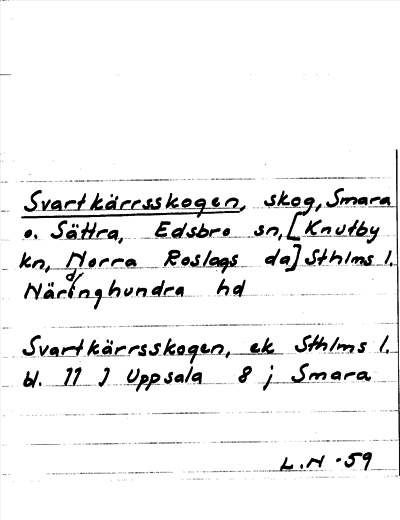 Svartkärrsskogen, skog, Smara
o. Sättra, Edsbro sn, [Knutby
kn, Norra Roslags da] Sthlms l.
Närdinghundra hd
Svartkärrsskogen, ek Sthlms l.
bl. 11 J Uppsala 8 j Smara
L.N -59